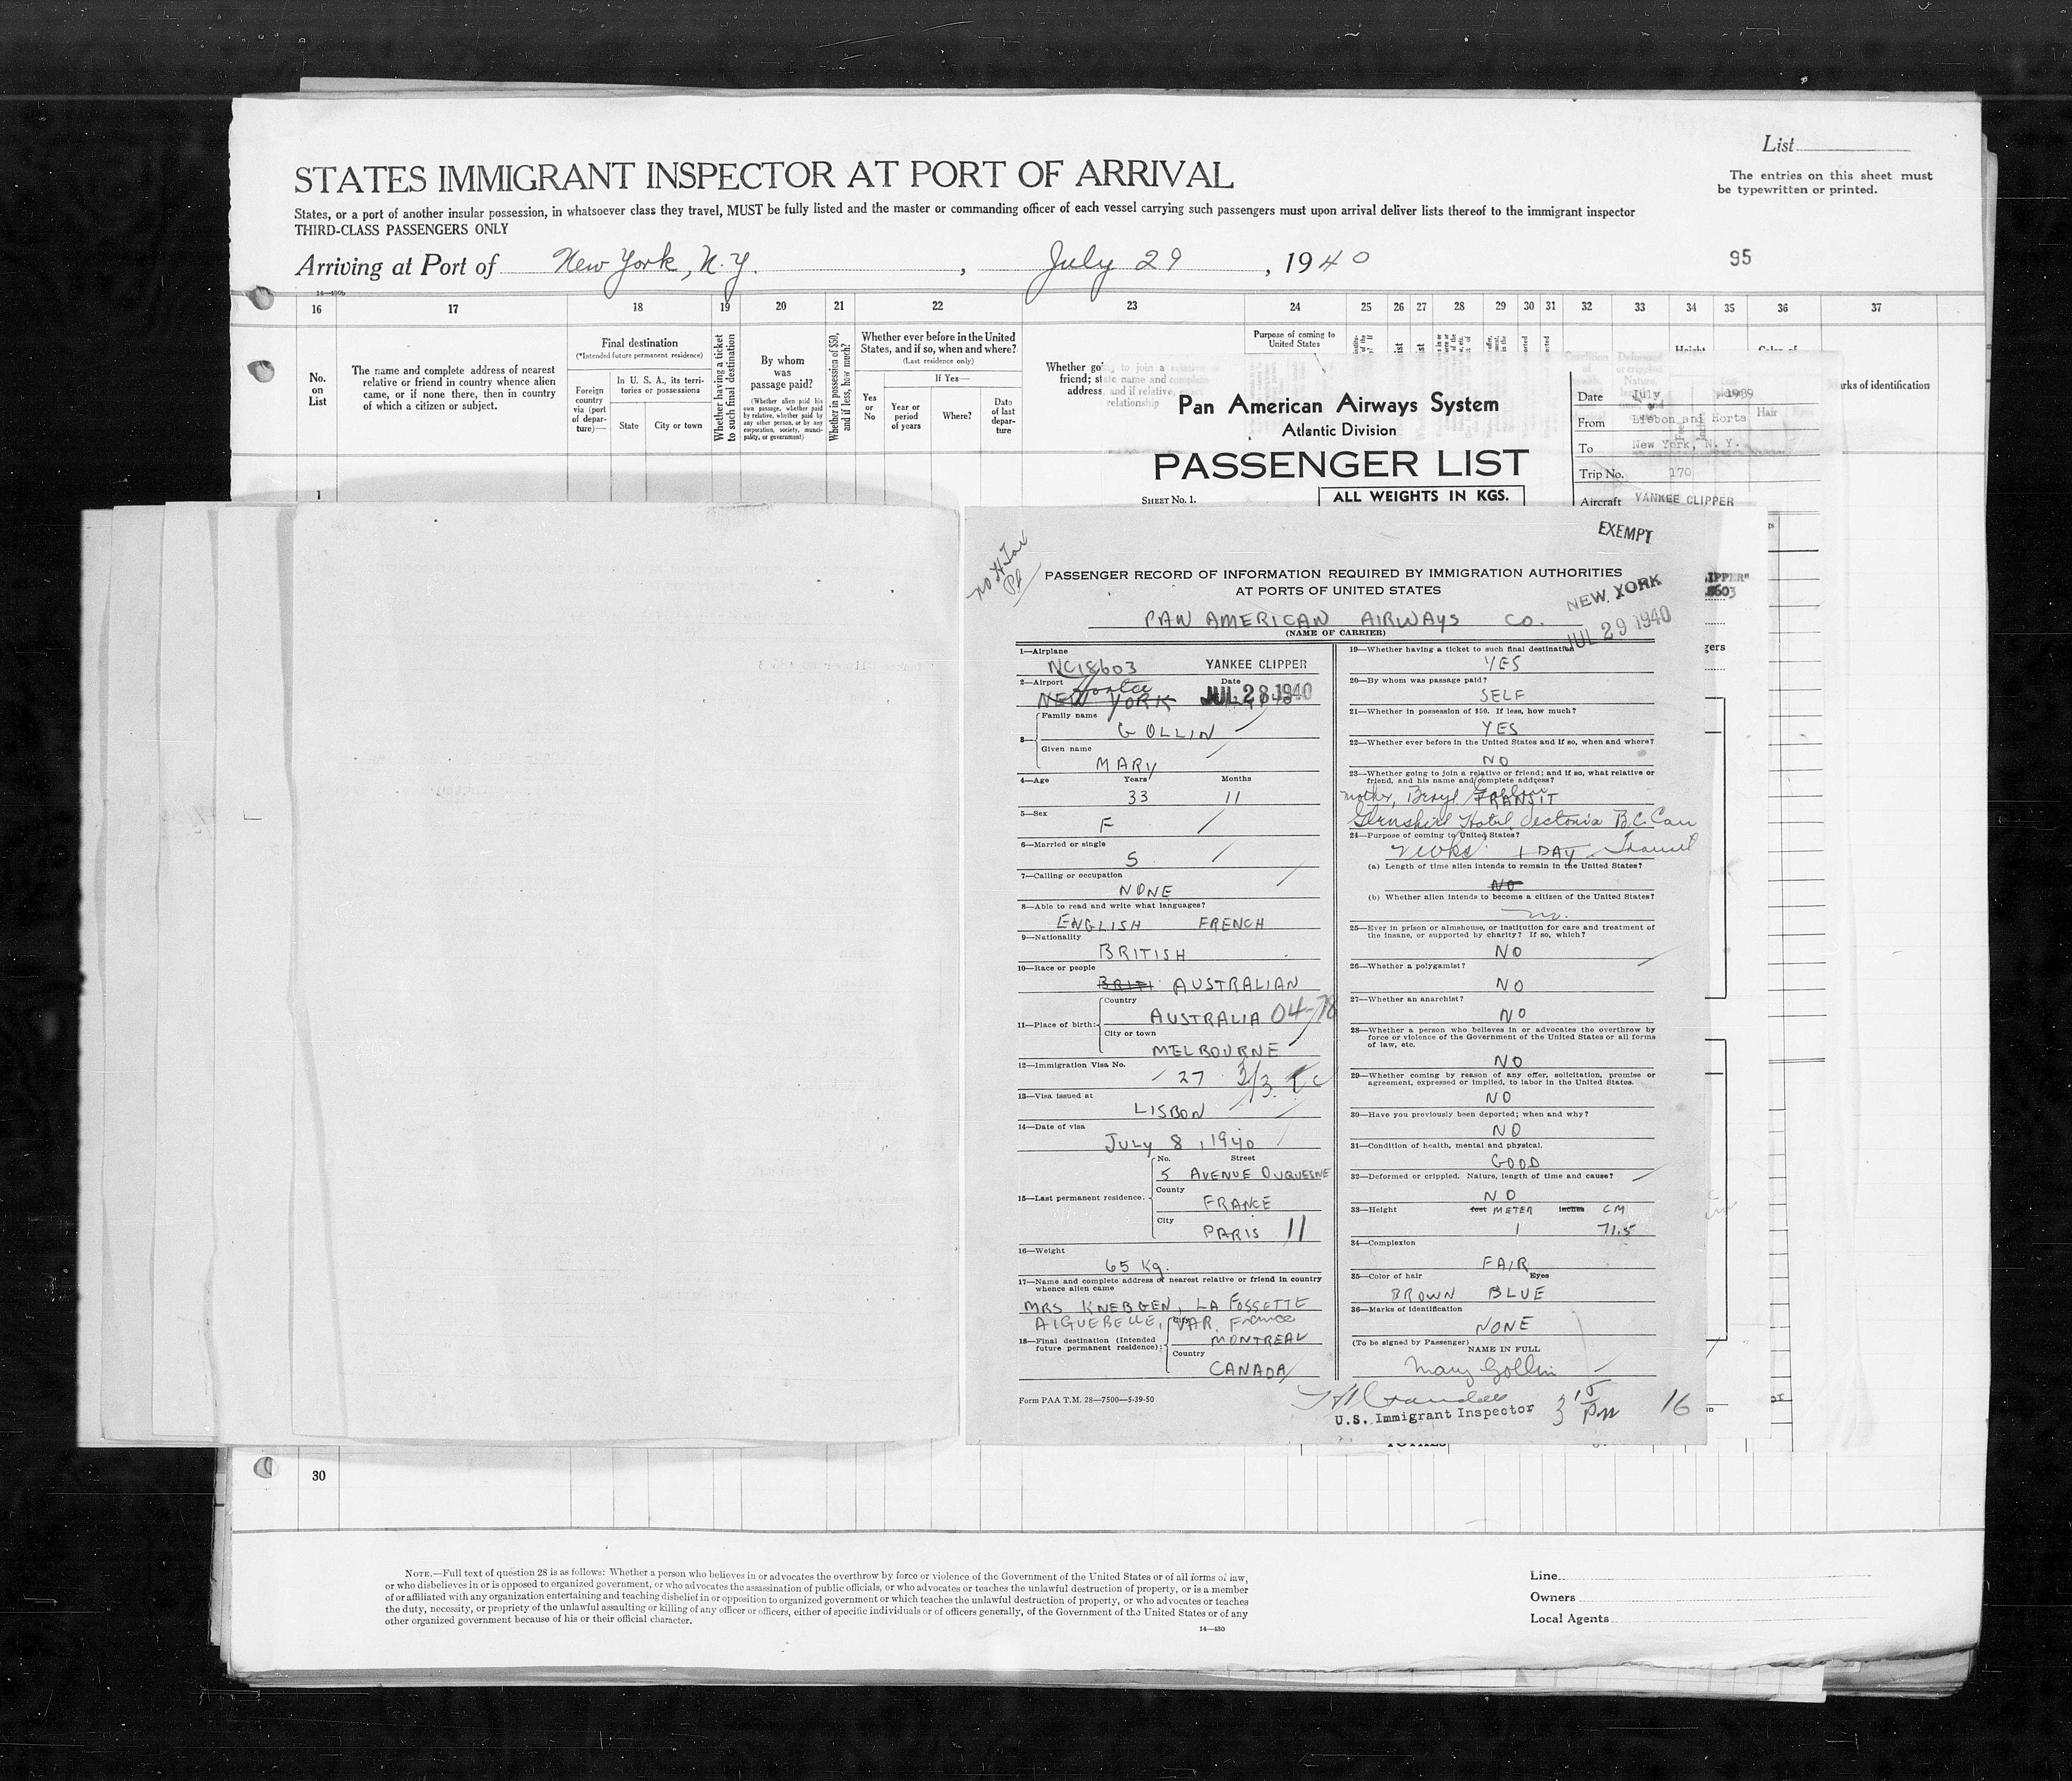 List
STATES IMMIGRANT INSPECTOR AT PORT OF ARRIVAL
The entries on this sheet must
be typewritten or printed.
States, or a port of another insular possession, in whatsoever class they travel, MUST be fully listed and the master or commanding officer of each vessel carrying such passengers must upon arrival deliver lists thereof to the immigrant inspector
THIRD-CLASS PASSENGERS ONLY
Arriving at Port of New York, N.Y. , July 29 , 1940
95
16 17 18 19 20 21 22 23 24 25 26 27 28 29 30 31 32 33 34 35 36 37
No.
on
List
The name and complete address of nearest
relative or friend in country whence alien
came, or if none there, then in country
of which a citizen or subject.
Final destination
(*Intended future permanent residence)
Foreign
country
via (port
of depar-
ture)—
In U. S. A., its terri-
tories or possessions
State
City or town
Whether having a ticket
to such final destination
By whom
was
passage paid?
(Whether alien paid his
own passage, whether paid
by relative, whether paid by
any other person, or by any
corporation, society, munici-
pality, or government)
Whether in possession of $50,
and if less, how much?
Whether ever before in the United
States, and if so, when and where?
(Last residence only)
Yes
or
No
If Yes—
Year or
period
of years
Where?
Date
of last
depar-
ture
Whether going to join a relative or
friend; state name and complete
address, and if relative,
relationship
Purpose of coming to
United States
Marks of identification
1
Pan American Airways System
Atlantic Division
PASSENGER LIST
SHEET No. 1.
ALL WEIGHTS IN KGS.
Date July 1939
From Lisbon and Horta
To New York, N. Y.
Trip No. 170
Aircraft YANKEE CLIPPER
EXEMPT
PASSENGER RECORD OF INFORMATION REQUIRED BY IMMIGRATION AUTHORITIES
AT PORTS OF UNITED STATES
NEW YORK
JUL 29 1940
PAN AMERICAN AIRWAYS CO.
(NAME OF CARRIER)
1—Airplane
NC18603 YANKEE CLIPPER
2—Airport Date
Horta
NEW YORK JUL 28 1940
3— Family name
GOLLIN
Given name
MARY
4—Age Years Months
33 11
5—Sex
F
6—Married or single
S
7—Calling or occupation
NONE
8—Able to read and write what languages?
ENGLISH FRENCH
9—Nationality
BRITISH
10—Race or people
BRITI AUSTRALIAN
11—Place of birth: Country
AUSTRALIA
City or town
MELBOURNE
12—Immigration Visa No.
27
13—Visa issued at
LISBON
14—Date of visa
July 8, 1940
15—Last permanent residence. No. Street
5 AVENUE DUQUESNE
County
FRANCE
City
PARIS 11
16—Weight
65 Kg.
17—Name and complete address of nearest relative or friend in country
whence alien came
MRS KNEBGEN, LA FOSSETTE
AIGUEBELLE, VAR, France
18—Final destination (Intended
future permanent residence): City
MONTREAL
Country
CANADA
Form PAA T.M. 28—7500—5-39-50
19—Whether having a ticket to such final destination
YES
20—By whom was passage paid?
SELF
21—Whether in possession of $50. If less, how much?
YES
22—Whether ever before in the United States and if so, when and where?
NO
23—Whether going to join a relative or friend; and if so, what relative or
friend, and his name and complete address?
mother, Beryl TRANSIT
Hotel B.C. Can
24—Purpose of coming to United States?
1 DAY Transit
(a) Length of time alien intends to remain in the United States?
NO
(b) Whether alien intends to become a citizen of the United States?
no.
25—Ever in prison or almshouse, or institution for care and treatment of
the insane, or supported by charity? If so, which?
NO
26—Whether a polygamist?
NO
27—Whether an anarchist?
NO
28—Whether a person who believes in or advocates the overthrow by
force or violence of the Government of the United States or all forms
of law, etc.
NO
29—Whether coming by reason of any offer, solicitation, promise or
agreement, expressed or implied, to labor in the United States.
NO
30—Have you previously been deported; when and why?
NO
31—Condition of health, mental and physical.
GOOD
32—Deformed or crippled. Nature, length of time and cause?
NO
33—Height feet METER inches CM
1 71.5
34—Complexion
FAIR
35—Color of hair Eyes
BROWN BLUE
36—Marks of identification
NONE
(To be signed by Passenger)
NAME IN FULL
Mary Gollin
U.S. Immigrant Inspector
16
30
NOTE.—Full text of question 28 is as follows: Whether a person who believes in or advocates the overthrow by force or violence of the Government of the United States or of all forms of law,
or who disbelieves in or is opposed to organized government, or who advocates the assassination of public officials, or who advocates or teaches the unlawful destruction of property, or is a member
of or affiliated with any organization entertaining and teaching disbelief in or opposition to organized government or which teaches the unlawful destruction of property, or who advocates or teaches
the duty, necessity, or propriety of the unlawful assaulting or killing of any officer or officers, either of specific individuals or of officers generally, of the Government of the United States or of any
other organized government because of his or their official character.
14—430
Line
Owners
Local Agents